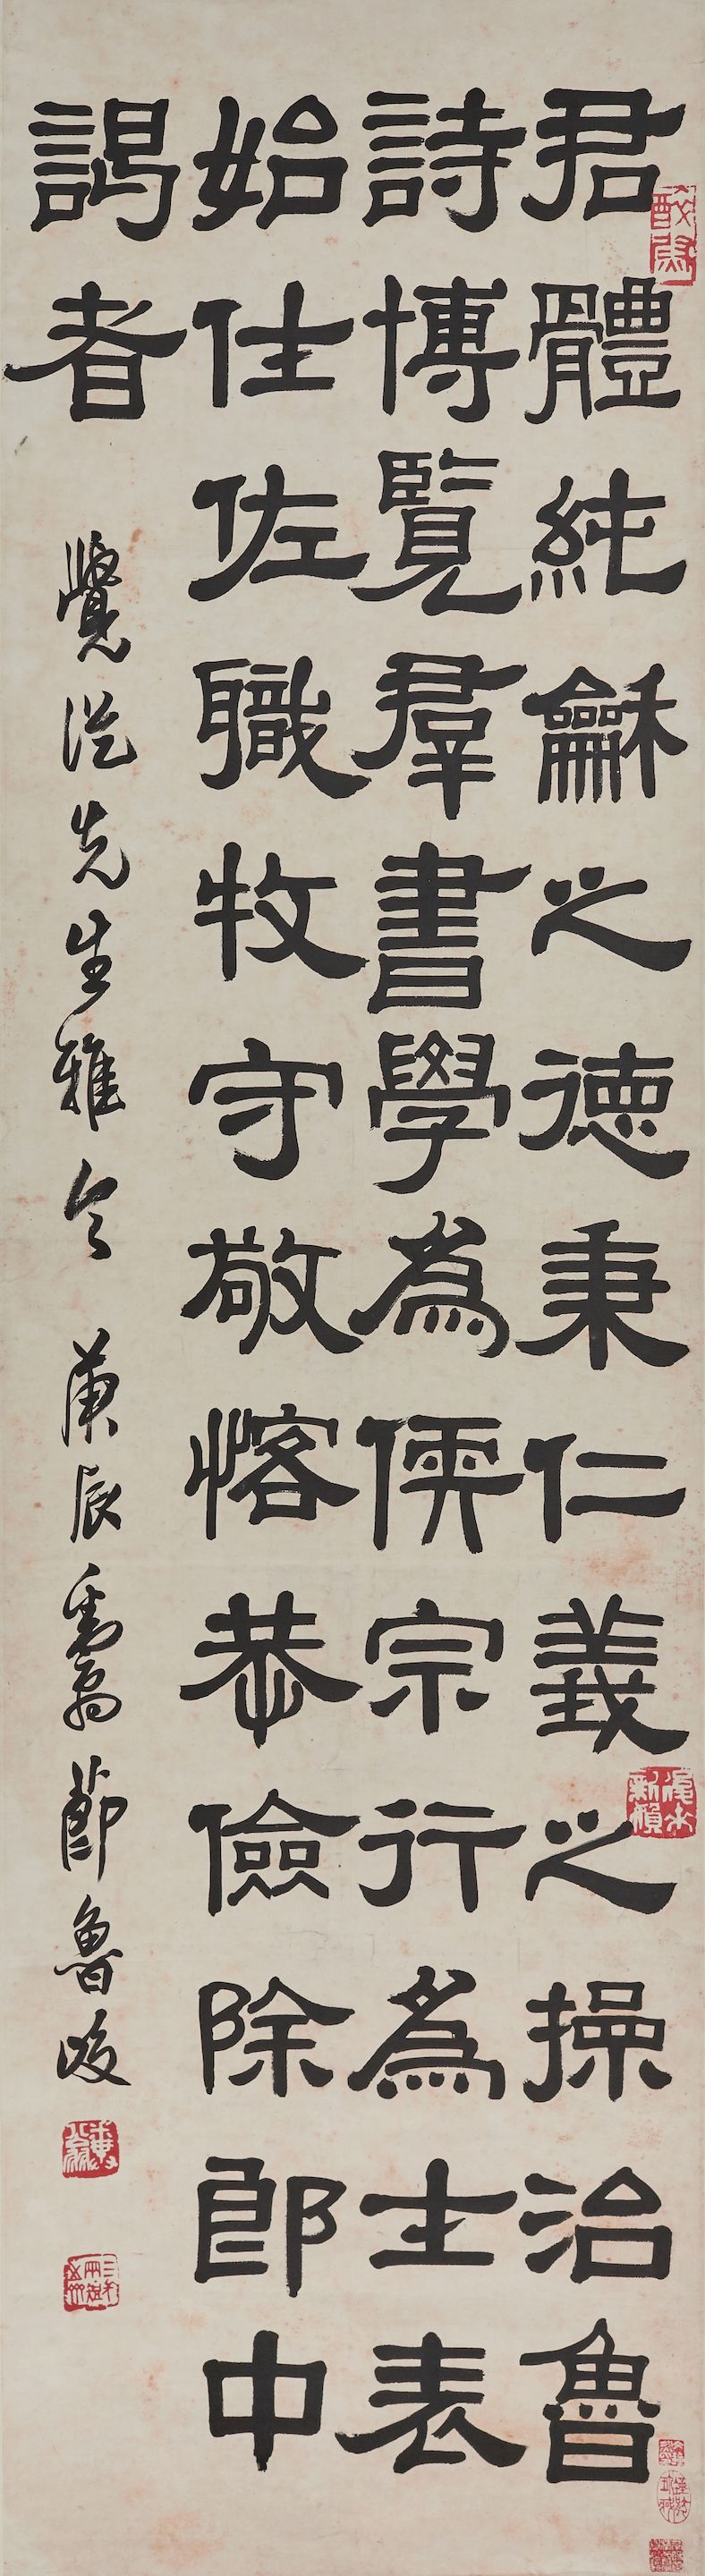 君體純龢之德秉仁義之操治魯
詩博覽羣書學為偄宗行為士表
始仕佐職牧守敬愘恭儉除郎中
謁者
覺先生雅令 庚辰 翁節魯峻